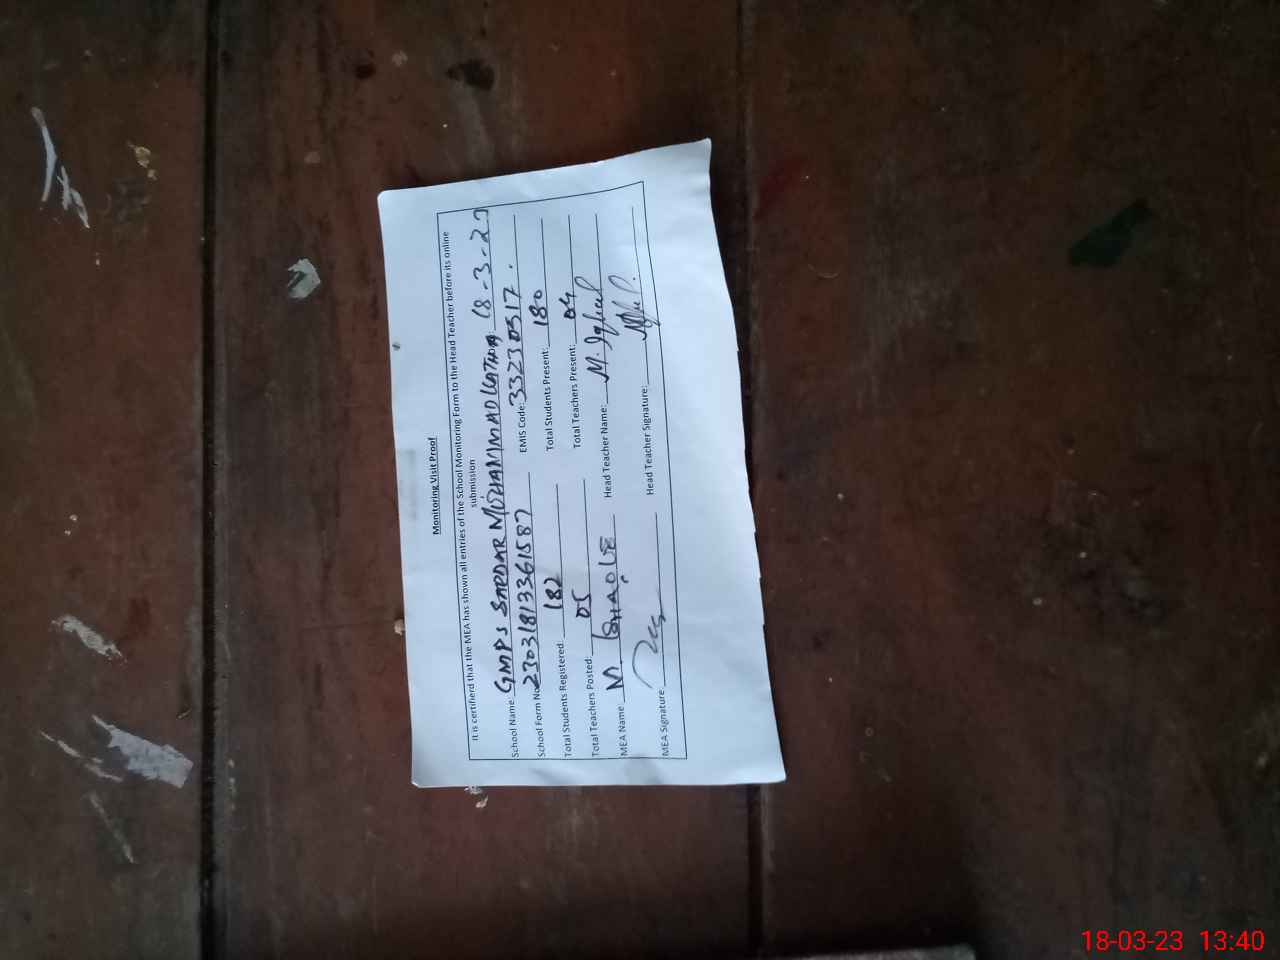 Monitoring Visit Proof
It is certifierd that the MEA has shown all entries of the School Monitoring Form to the Head Teacher before its online
submission
School Name: GMPS SARDAR MUHAMMAD 18-3-23
School Form No 23031813361587 EMIS Code: 33230517.
Total Students Registered: 182 Total Students Present: 180
Total Teachers Posted: 05 Total Teachers Present: 04
MEA Name M. Head Teacher Name: M. Iqbal
MEA Signature Head Teacher Signature:
18-03-23 13:40